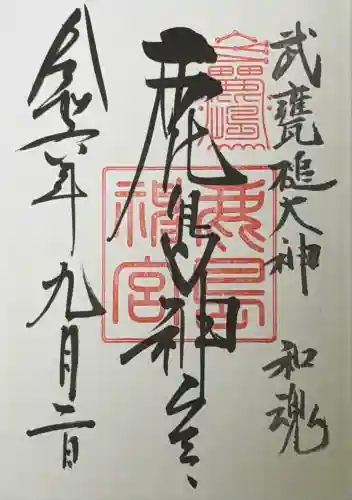 武甕槌大神　和魂
鹿島神宮
令和六年九月二日
鹿島神宮